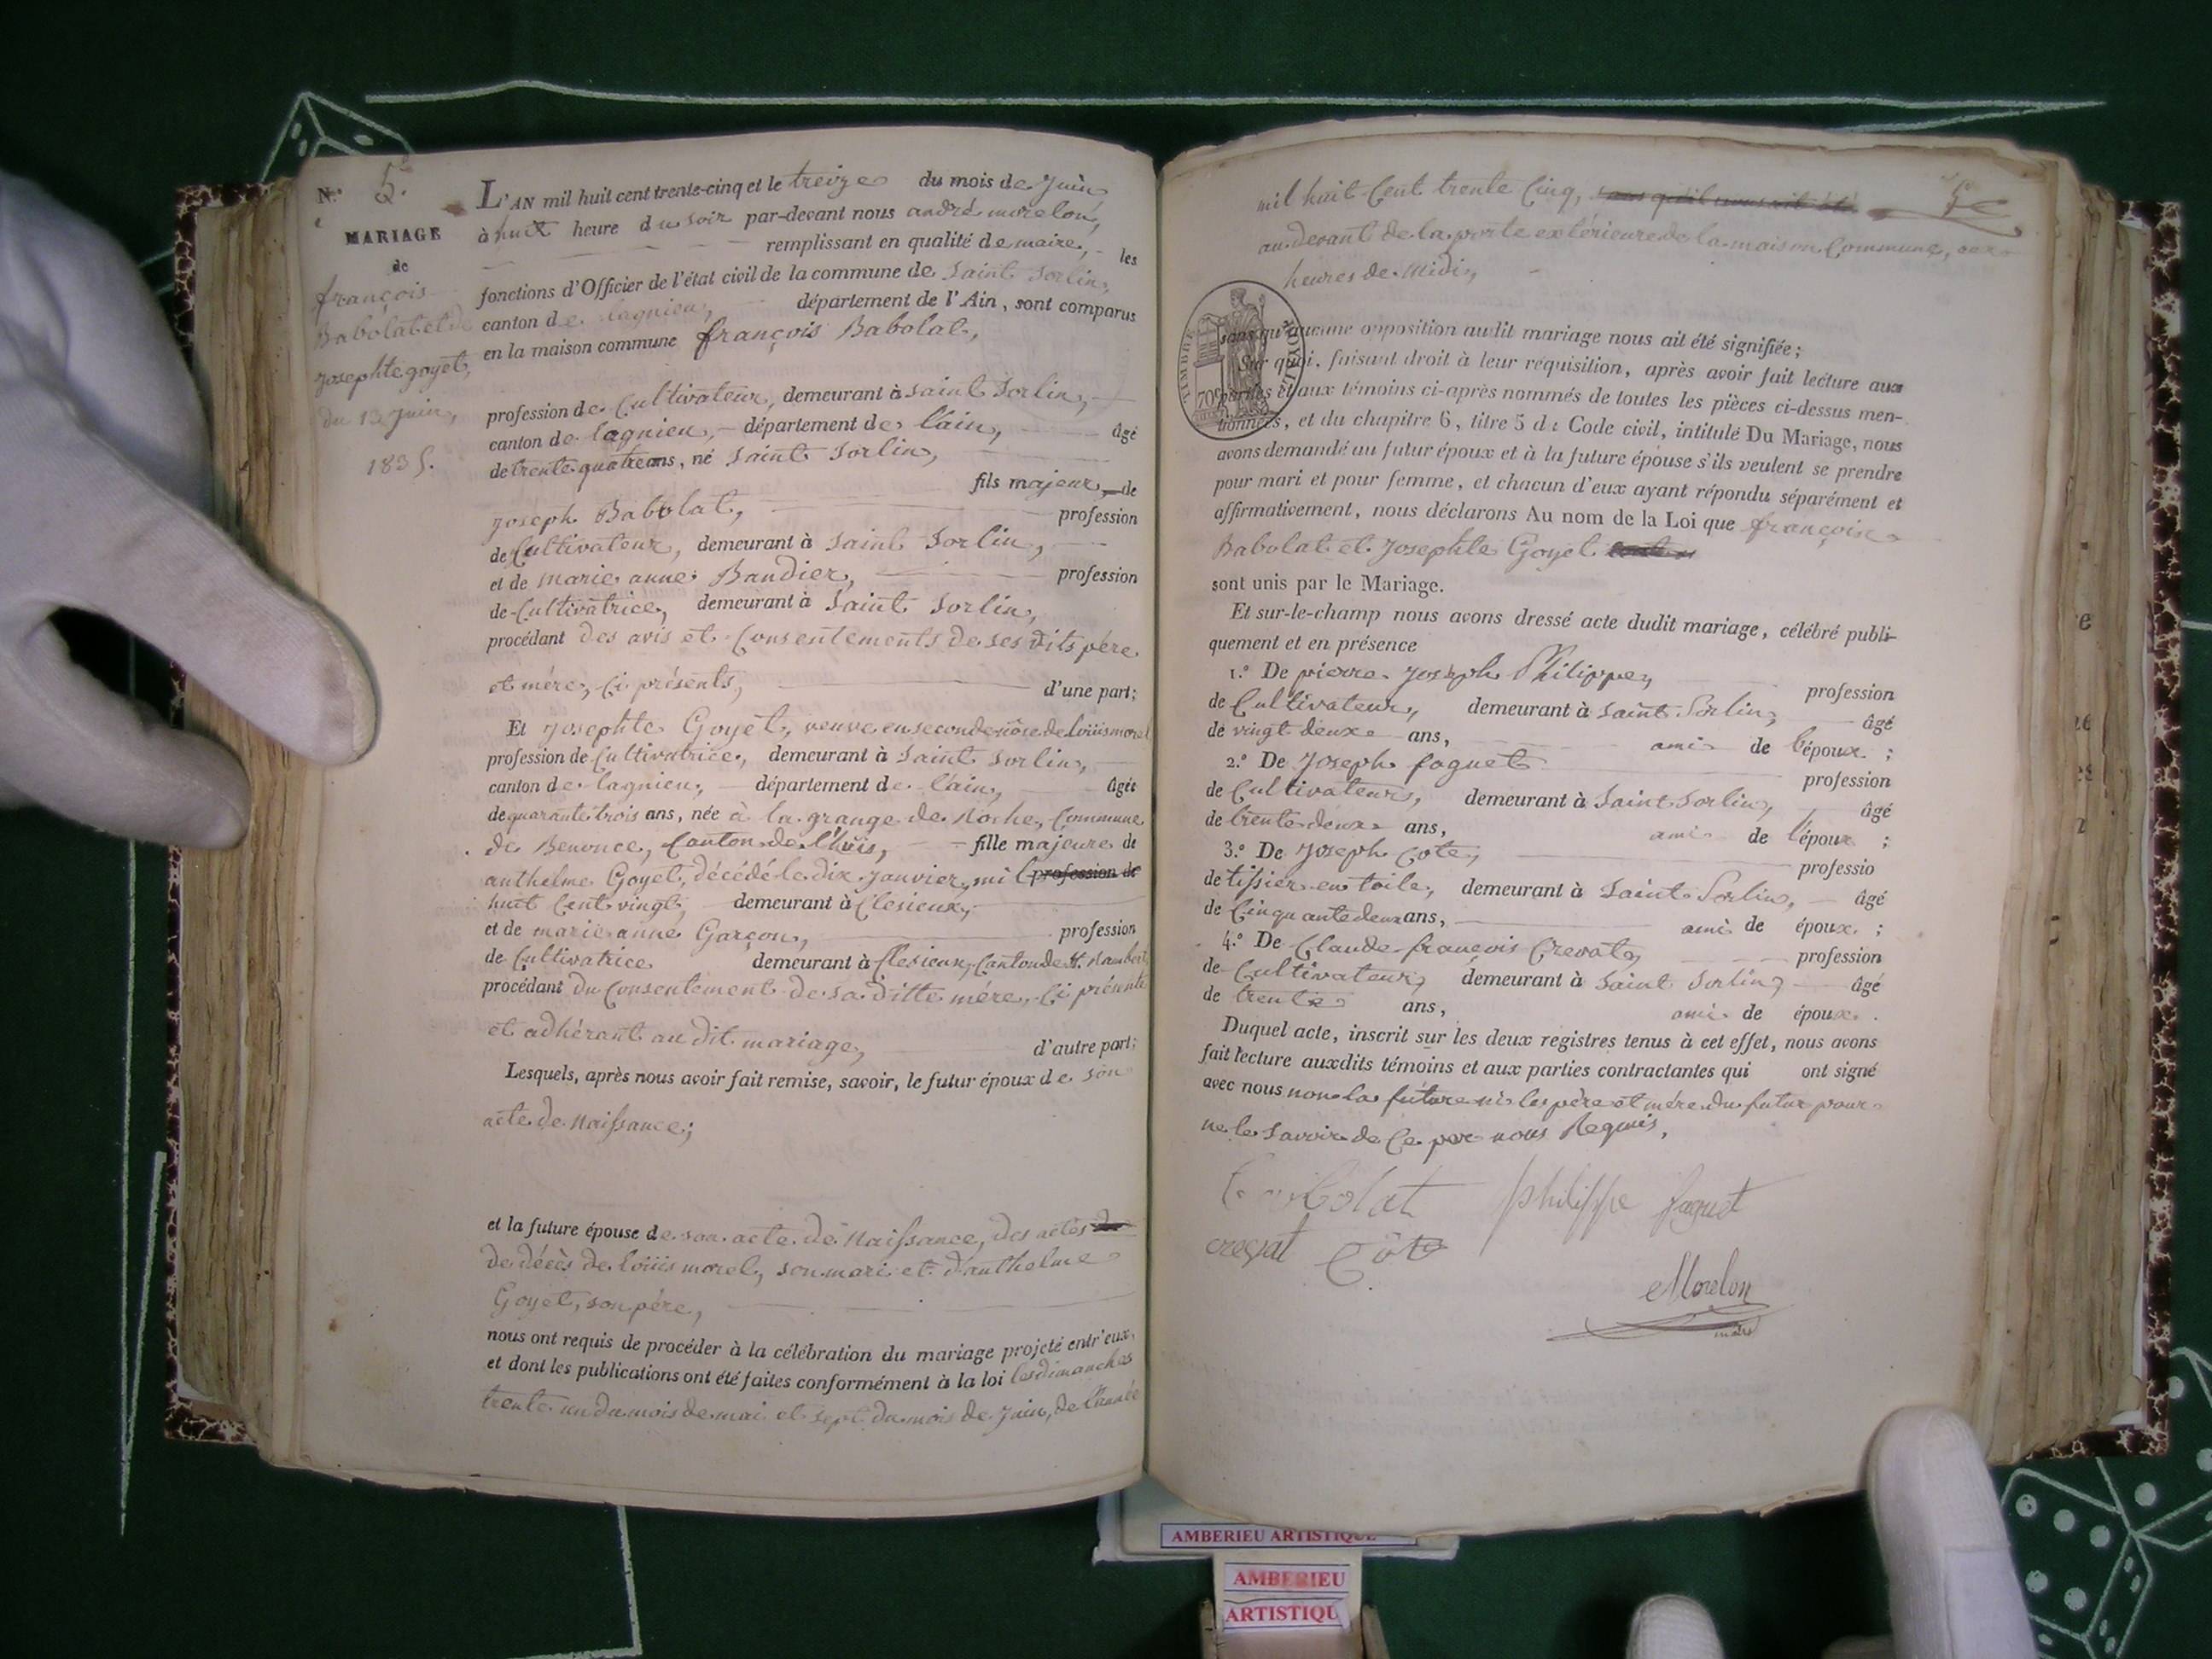 N.° 5.
MARIAGE
de
françois
Babolat et de
Josephte goyet,
du 13 Juin,
1835.
L'AN mil huit cent trente-cinq et le treize du mois de Juin
à huit heure du soir par-devant nous andré morelon,
remplissant en qualité de maire, les
fonctions d'Officier de l'état civil de la commune de Saint Sorlin,
canton de lagnieu, département de l'Ain, sont comparus
en la maison commune françois Babolat,
profession de Cultivateur, demeurant à Saint Sorlin,
canton de lagnieu, département de l'ain, âgé
de trente quatre ans, né Saint Sorlin,
fils majeur de
Joseph Babolat, profession
de Cultivateur, demeurant à Saint Sorlin,
et de marie anne Bandier, profession
de Cultivatrice, demeurant à Saint Sorlin,
procédant des avis et Consentements de ses dits père
et mère, Ci présents, d'une part;
Et Josephte Goyet, veuve en seconde nôse de loüis morel
profession de Cultivatrice, demeurant à Saint Sorlin,
canton de lagnieu, département de l'ain, âgée
de quarante trois ans, née à la grange de Roche, Commune
de Benonce, Canton de l'huis, fille majeure de
anthelme Goyet, décédé le dix Janvier mil profession de
huit Cent vingt, demeurant à Clesieux,
et de marie anne Garçon, profession
de Cultivatrice demeurant à Clesieux, Canton de St. Rambert
procédant du Consentement de sa ditte mère, Ci présente
et adhérant au dit mariage, d'autre part;
Lesquels, après nous avoir fait remise, savoir, le futur époux de son
acte de Naissance;
et la future épouse de son acte de Naissance, des actes
de décès de loüis morel, son mari et d'anthelme
Goyet, son père,
nous ont requis de procéder à la célébration du mariage projeté entr'eux,
et dont les publications ont été faites conformément à la loi les dimanches
trente un du mois de mai et sept du mois de Juin, de l'année
mil huit Cent trente Cinq,
au devant de la porte extérieure de la maison Commune, aux
heures de Midi,
TIMBRE ROYAL
70c
sans qu'aucune opposition audit mariage nous ait été signifiée;
Sur quoi, faisant droit à leur réquisition, après avoir fait lecture aux
parties et aux témoins ci-après nommés de toutes les pièces ci-dessus men-
tionnées, et du chapitre 6, titre 5 du Code civil, intitulé Du Mariage, nous
avons demandé au futur époux et à la future épouse s'ils veulent se prendre
pour mari et pour femme, et chacun d'eux ayant répondu séparément et
affirmativement, nous déclarons Au nom de la Loi que françois
Babolat et Josephte Goyet
sont unis par le Mariage.
Et sur-le-champ nous avons dressé acte dudit mariage, célébré publi-
quement et en présence
1.° De pierre Joseph Philippe, profession
de Cultivateur, demeurant à Saint Sorlin, âgé
de vingt deux ans, ami de l'époux ;
2.° De Joseph faguet profession
de Cultivateur, demeurant à Saint Sorlin, âgé
de trente deux ans, ami de l'époux ;
3.° De Joseph Cote, professio
de tissier en toile, demeurant à Saint Sorlin, âgé
de Cinquante deux ans, ami de époux. ;
4.° De Claude françois Crevat, profession
de Cultivateur, demeurant à Saint Sorlin, âgé
de trente ans, ami de époux.
Duquel acte, inscrit sur les deux registres tenus à cet effet, nous avons
fait lecture auxdits témoins et aux parties contractantes qui ont signé
avec nous non la future ni les père et mère du futur pour
ne le savoir de Ce par nous Requis,
Babolat philippe faguet
crevat Côte
Morelon
maire
AMBERIEU ARTISTIQUE
AMBERIEU
ARTISTIQU